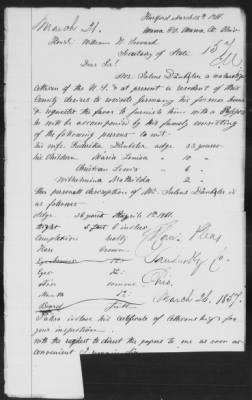 Hartford March 18th 1861.
March 21.
Honl. William H. Seward
Secretary of State
Dear Sir!
Mr. Julius Dünbyler a naturalized
citizen of the U. S. & at present a resident of this
County desires to visit Germany his former home
& requested the favor of furnish him with a Passport
he will be accompanied by his family consisting
of the following persons to wit:
his wife Frederika Dünbyler age 33 years
his Children Maria Louisa " 10 "
Christian Lewis " 6 "
Wilhelmina Mathilda " 2 "
The personal description of Mr. Julius Dünbyler is
as follows
Age. 36 years April 1st 1861.
Hight 5 feet 6 inches
Complexion healthy
Hair brown
Eyes do
Nose comone
Mouth do
Beard full
Sandusky Co.
Ohio.
March 26. 1857.
I also inclose his certificate of Citizenship for
your inspection.
with the request to direct the papers to me as soon as
convenient I remain